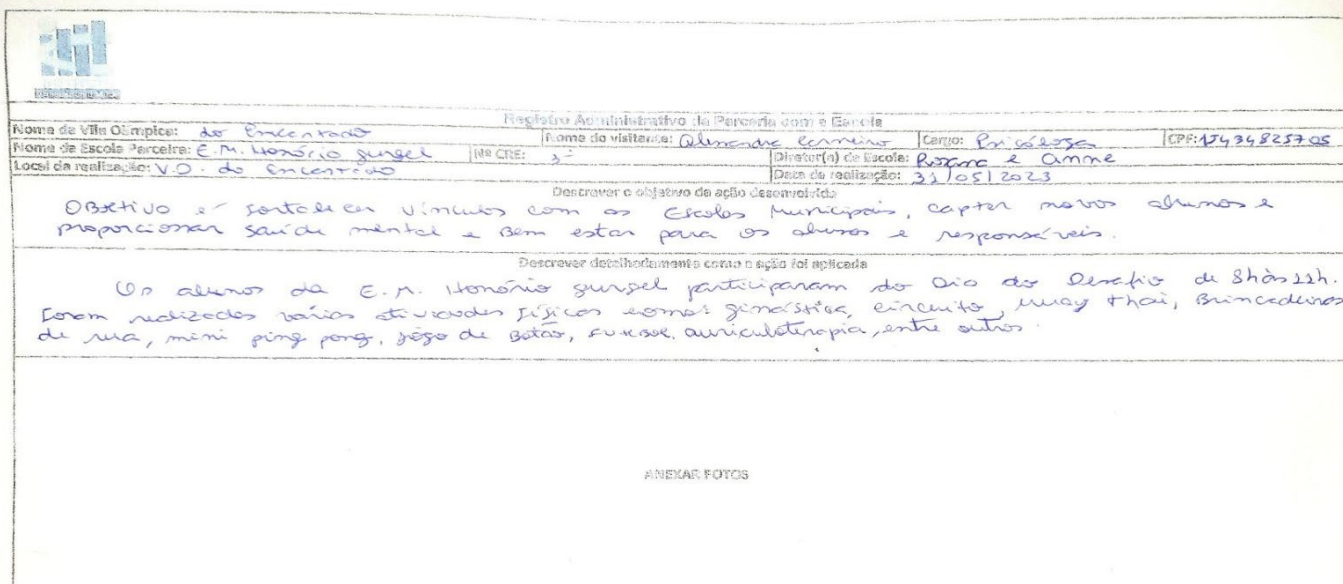 Registro Administrativo da Parceria com a Escola
Nome da Vila Olímpica: do Encantado Nome do visitante: Alexandra Carneiro Cargo: Psicóloga CPF: 15434825705
Nome da Escola Parceira: E.M. Honório Gurgel Nº CRE: 3ª Diretor(a) da Escola: Rosana e Anne
Local da realização: V.O. do Encantado Data da realização: 31/05/2023
Descrever o objetivo da ação desenvolvida
Objetivo é fortalecer vínculos com as Escolas Municipais, captar novos alunos e
proporcionar saúde mental e Bem estar para os alunos e responsáveis.
Descrever detalhadamente como a ação foi aplicada
Os alunos da E.M. Honório Gurgel participaram do Dia do Desafio de 8h às 11h.
Foram realizadas várias atividades físicas como: ginástica, circuito, muay thai, Brincadeiras
de rua, mini ping pong, jogo de Botão, Futebol, auriculoterapia, entre outros.
ANEXAR FOTOS